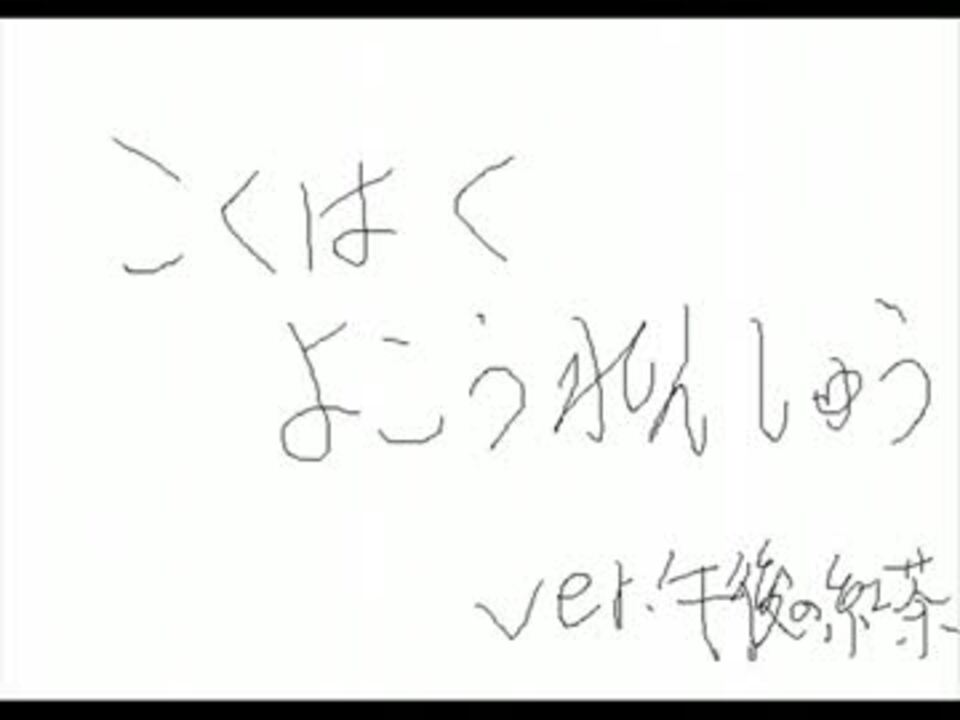 こくはく
よこうれんしゅう
ver.午後の紅茶